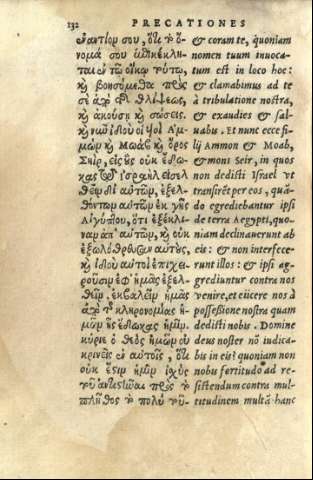 132 PRECATIONES
ἐναντίον σου, ὅτι τὸ ὄ-
νομά σου ἐπικέκλη-
ται ἐν τῷ οἴκῳ τούτῳ,
καὶ βοησόμεθα πρὸς
σὲ ἀπὸ τῆς θλίψεως,
καὶ ἀκούσῃ καὶ σώσεις.
καὶ νῦν ἰδοὺ οἱ υἱοὶ Ἀμ-
μὼν καὶ Μωὰβ, καὶ ὄρος
Σηὶρ, εἰς οὓς οὐκ ἔδω-
κας τῷ ἰσραὴλ
θεῖν δι' αὐτῶν, ἐξελ-
θόντων αὐτῶν ἐκ γῆς
Αἰγύπτου, ὅτι ἐξέκλι-
ναν ἀπ' αὐτῶν, καὶ οὐκ
ἐξωλόθρευσαν αὐτοὺς,
καὶ ἰδοὺ αὐτοὶ ἐπιχει-
ροῦσιν ἐφ' ἡμᾶς ἐξελ-
θεῖν, ἐκβαλεῖν ἡμᾶς
ἀπὸ τῆς κληρονομίας ἡ-
μῶν ἧς ἔδωκας ἡμῖν.
κύριε ὁ θεὸς ἡμῶν οὐ
κρινεῖς ἐν αὐτοῖς, ὅτι
οὐκ ἔστιν ἡμῖν ἰσχὺς
τοῦ ἀντιστῆναι πρὸς τὸ
πλῆθος τὸ πολὺ τοῦ-
& coram te, quoniam
nomen tuum inuoca-
tum est in loco hoc:
& clamabimus ad te
à tribulatione nostra,
& exaudies & sal-
uabis. Et nunc ecce fi-
lij Ammon & Moab,
& mons Seir, in quos
non dedisti Israel vt
transiret per eos, quã-
do egrediebantur ipsi
de terra Aegypti, quo-
niam declinauerunt ab
eis: & non interfece-
runt illos: & ipsi ag-
grediuntur contra nos
venire, et eiicere nos à
possessione nostra quam
dedisti nobis. Domine
deus noster nõ iudica-
bis in eis? quoniam non
nobis fortitudo ad re-
sistendum contra mul-
titudinem multã hanc